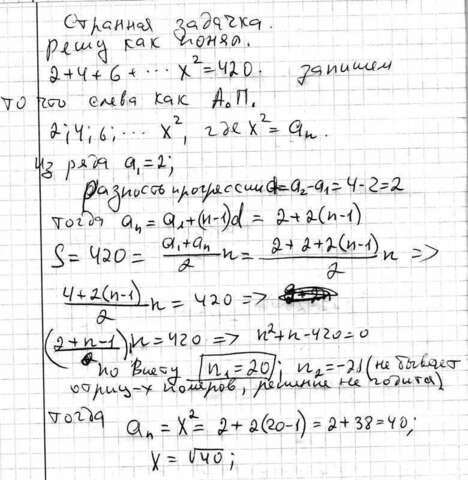 Странная задачка.
решу как понял.
2+4+6+⋯ x²=420. запишем
то что слева как А.П.
2; 4; 6; ⋯ x², где x² = aₙ.
из ряда a₁=2;
Разность прогрессии d=a₂-a₁=4-2=2
тогда aₙ = a₁+(n-1)d = 2+2(n-1)
S = 420 = (a₁+aₙ)/2 n = (2+2+2(n-1))/2 n =>
(4+2(n-1))/2 n = 420 =>
(2+n-1)n=420 => n²+n-420=0
по Виету n₁=20; n₂=-21 (не бывает
отриц-х номеров, решение не годится)
тогда
aₙ = x² = 2+2(20-1) = 2+38=40;
x = √40;